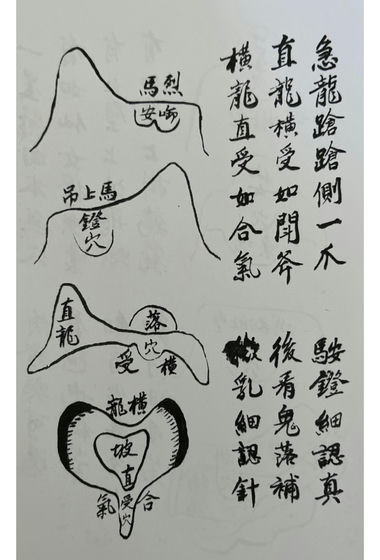 急龍蹌蹌側一爪
鐙細認真
直龍橫受如開斧
後看鬼落補
橫龍直受如合氣
乳細認針
烈馬
啣安
馬上吊
鐙穴
直龍
落穴
橫受
橫龍
坡
直受穴
合氣